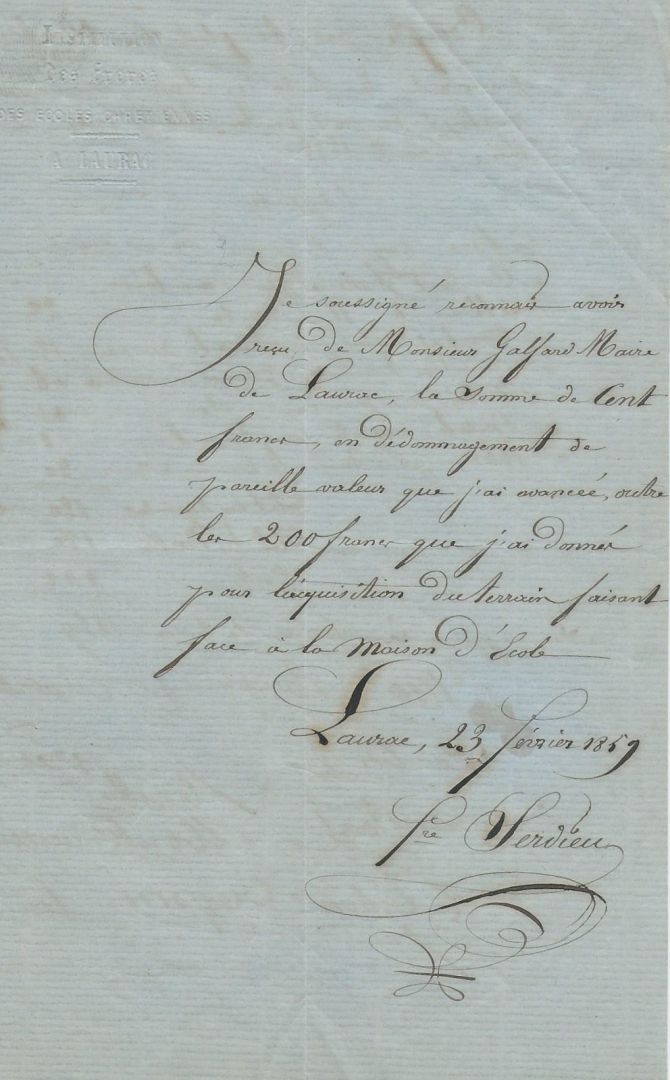 Institution
des frères
DES ECOLES CHRETIENNES
A LAURAC
Je soussigné reconnais avoir
reçu, de Monsieur Galfard Maire
de Laurac, la somme de Cent
francs, en dédommagement de
pareille valeur que j'ai avancée, outre
les 200 francs que j'ai donnés
pour l'acquisition du terrain faisant
face à la maison d'École
Laurac, 23 février 1859
fre Serdieu